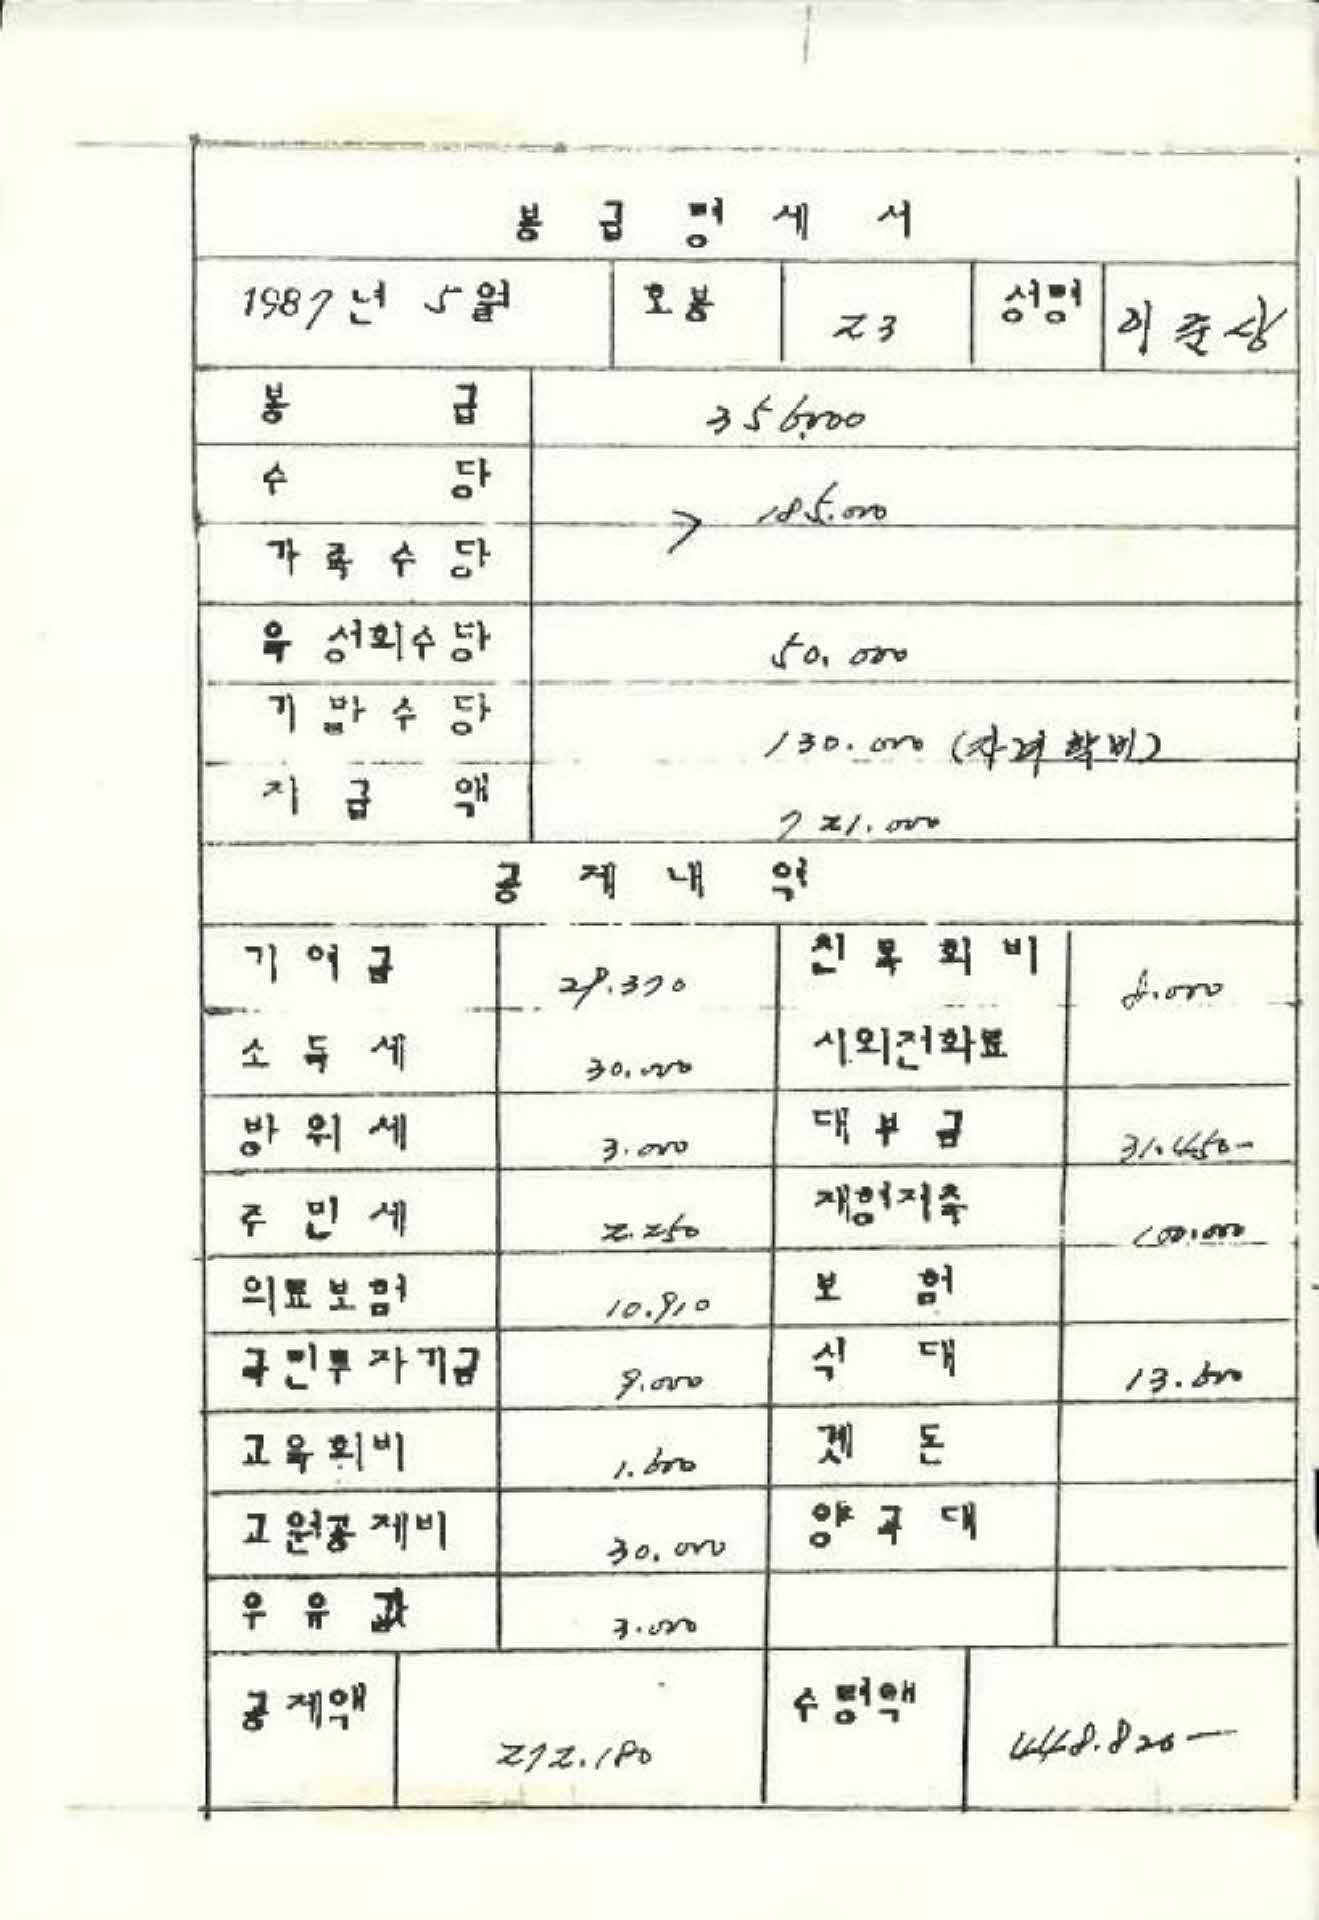 봉 급 명 세 서
1987년 5월 호봉 23 성명 이준상
봉 급 356,000
수 당 185.000
가 족 수 당
육성회수당 50.000
기 말 수 당 130.000 (자녀학비)
지 급 액 721.000
공 제 내 역
기 여 금 29.370 친 목 회 비 8.000
소 득 세 30.000 시외전화료
방 위 세 3.000 대 부 금 31.450-
주 민 세 2.250 재형저축 100.000
의료보험 10.910 보 험
국민투자기금 9.000 식 대 13.600
교육회비 1.600 곗 돈
교원공제비 30.000 양 곡 대
우 유 값 3.000
공제액 272.180 수령액 448.820-